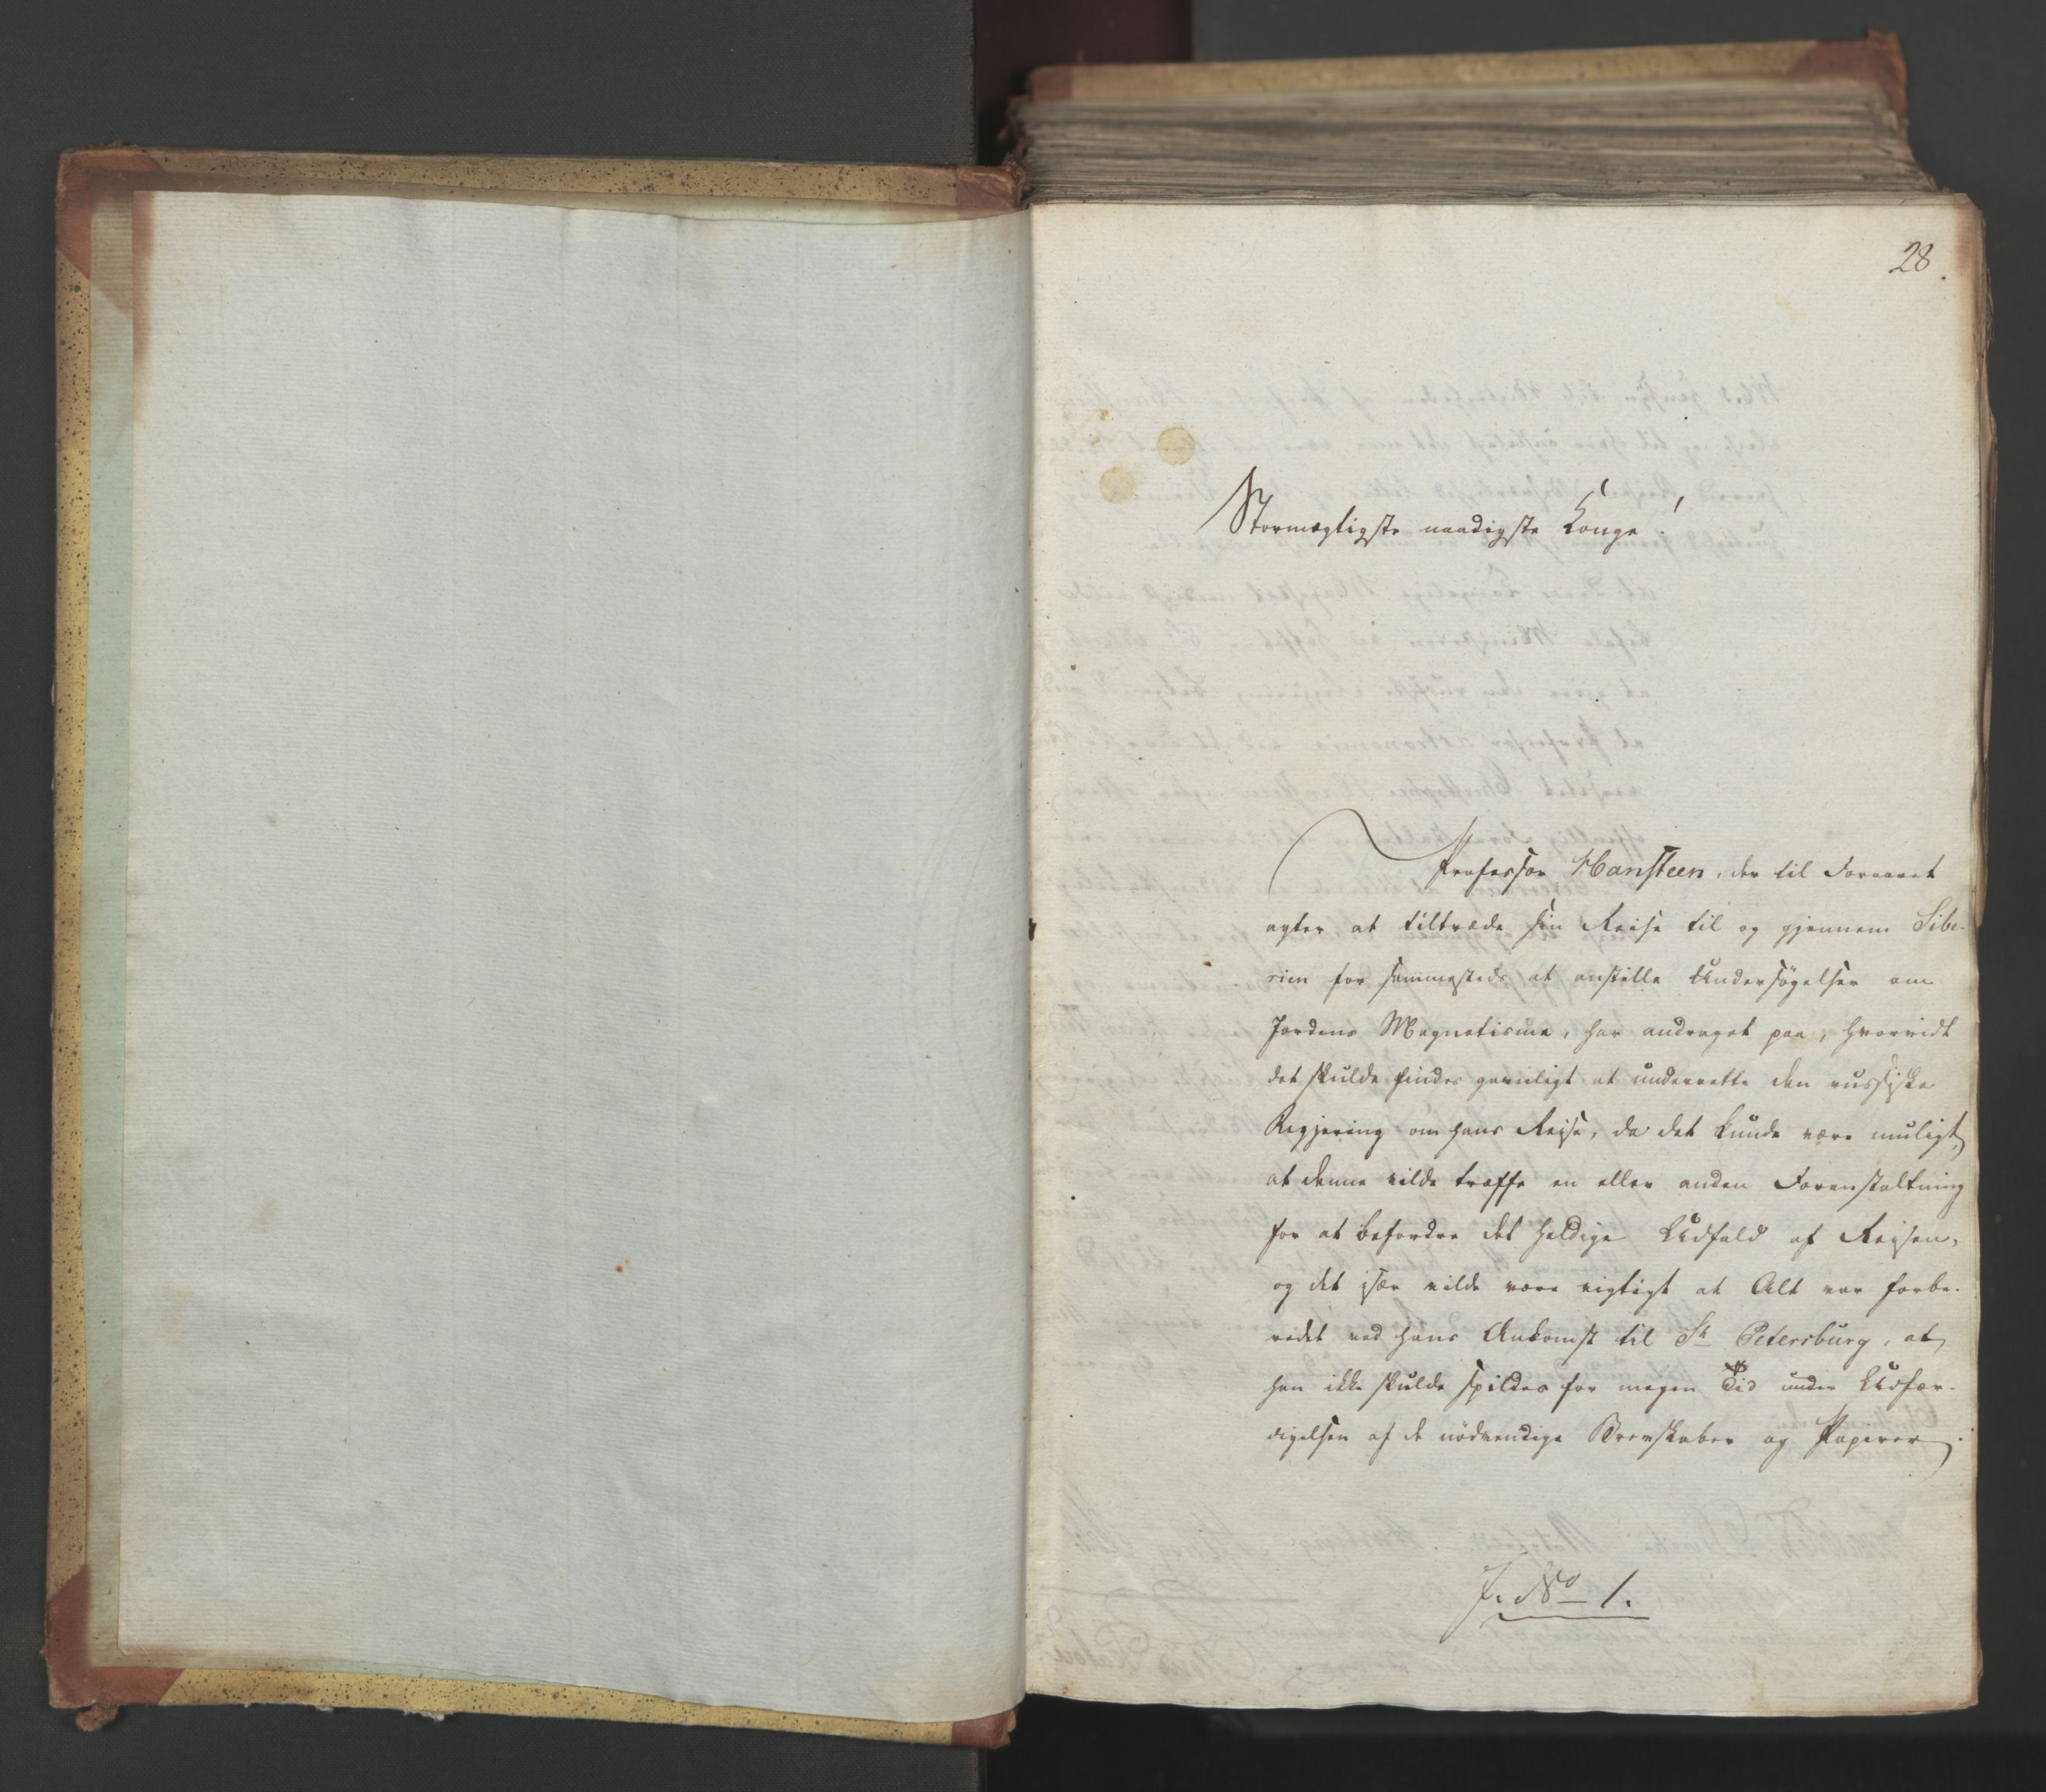 28.
Stormægtigste naadigste Konge!
Professor Hansteen, der til Foraaret
agter at tiltræde sin Reise til og gjennem Sibe-
rien for sammesteds at anstille Undersøgelser om
Jordens Magnetisme, har andraget paa, hvorvidt
det skulde findes gavnligt at underrette den russiske
Regjering om hans Reise, da det kunde være muligt,
at denne vilde træffe en eller anden Foranstaltning
for at befordre det heldige Udfald af Reisen,
og det især vilde være vigtigt at Alt var forbe-
redet ved hans Ankomst til St Petersburg, at
han ikke skulde spildes for megen Tid under Udfær-
digelsen af de nødvendige Brevskaber og Papirer.
J. No 1.